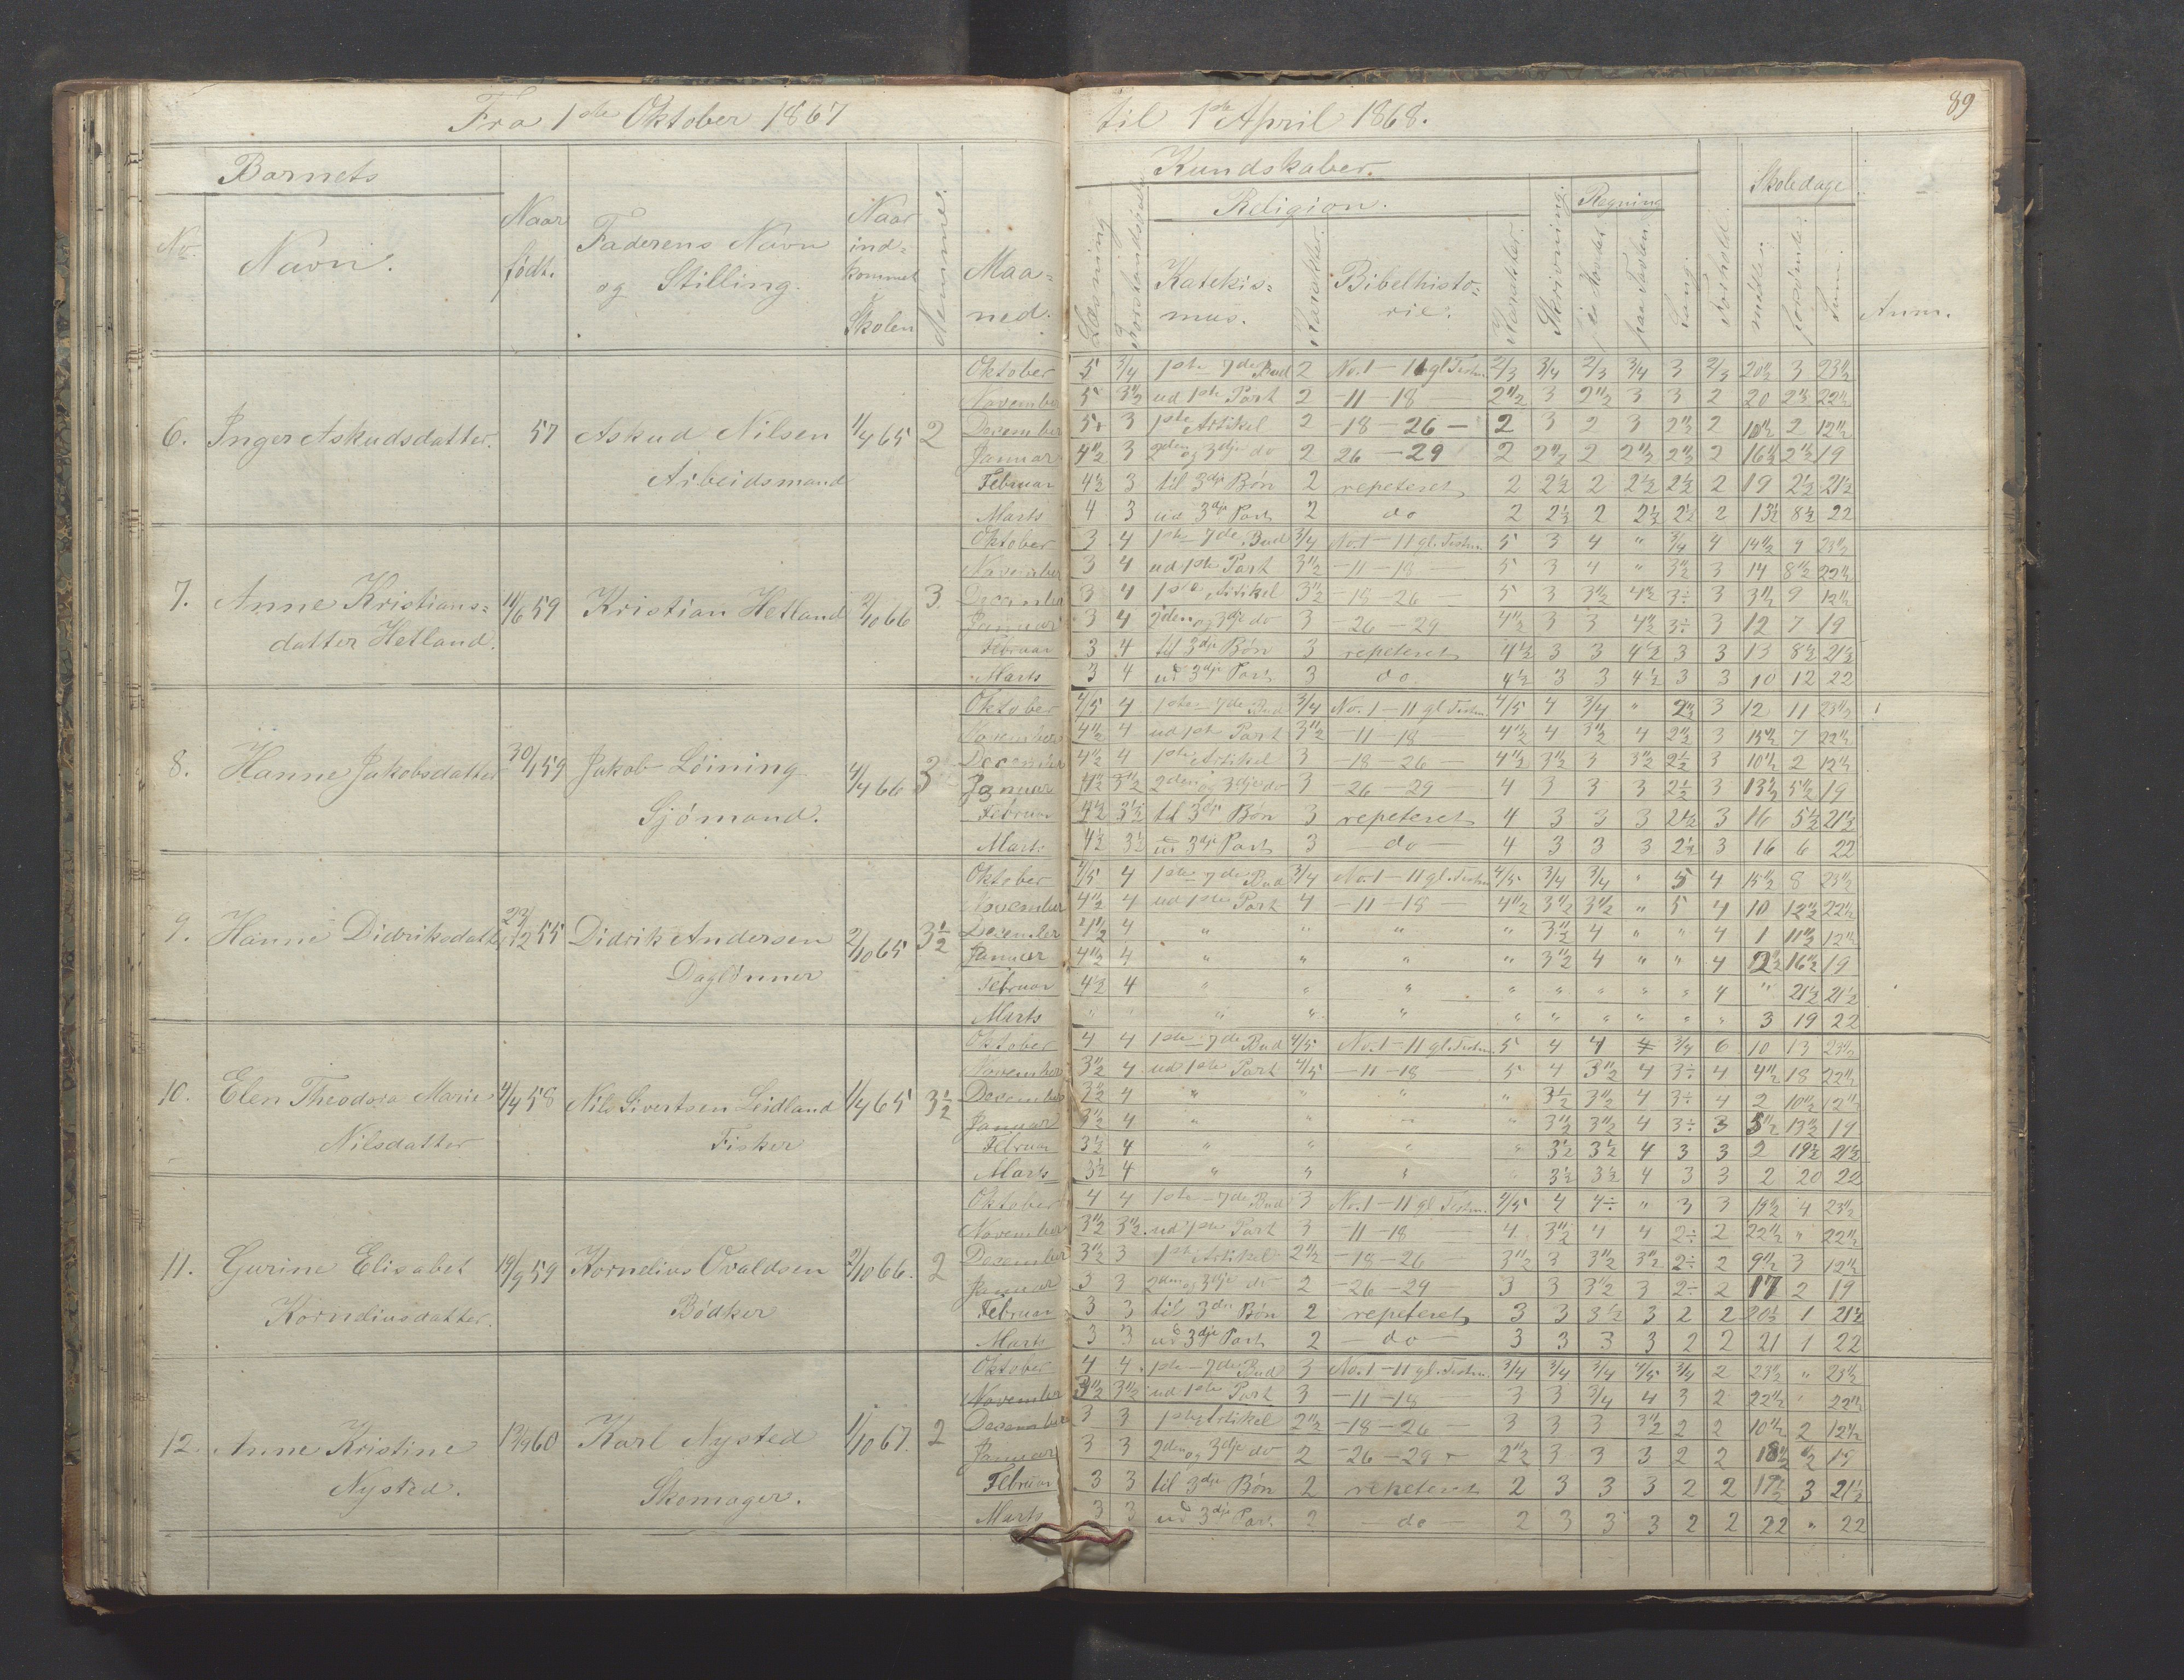 Fra 1ste Oktober 1867 til 1ste April 1868.
89
Barnets
Kundskaber.
Skoledage
No.
Navn.
Naar
født.
Faderens Navn
og Stilling.
Naar
ind=
kommet
Skolen
Nummer.
Maa=
ned.
Læsning
Religion.
Katekis=
mus.
Karakter.
Bibelhisto=
rie.
Karakter.
Skrivning.
Regning
i Hovedet
paa Tavlen
Sang.
Forhold.
mødte
forsømte
Sum.
Anm.
6. Inger Askudsdatter. 57 Askud Nilsen 1/4 65 2
Arbeidsmand
Oktober 5 3/4 1ste 7de Bud 2 No. 1 – 11 gl Testm. 2/3 3/4 2/3 3/4 3 2/3 20½ 3 23½
November 5 3½ ud 1ste Part 2 – 11 – 18 – 2½ 3 2½ 3 3 2 20 2½ 22½
December 5 3 1ste Artikel 2 – 18 – 26 – 2 3 2 3 2½ 2 10½ 2 12½
Januar 4½ 3 2den og 3dje do 2 26 – 29 2 2½ 2 2½ 2½ 2 16½ 2½ 19
Februar 4½ 3 til 3dje Bøn 2 repeteret 2 2½ 2 2½ 2½ 2 19 2½ 21½
Marts 4 3 ud 3dje Part 2 do 2 2½ 2 2½ 2½ 2 13½ 8½ 22
7. Anne Kristians= 11/6 59 Kristian Hetland 2/10 66 3
datter Hetland.
Oktober 3 4 1ste – 7de Bud 3/4 No. 1 – 11 gl. Testm. 5 3 4 " 3/4 4 14½ 9 23½
November 3 4 ud 1ste Part 3½ – 11 – 18 – 5 3 4 " 3½ 3 14 8½ 22½
December 3 4 1ste Artikel 3½ – 18 – 26 – 5 3 3½ 4½ 3÷ 3 3½ 9 12½
Januar 3 4 2den og 3dje do 3 – 26 – 29 4½ 3 3 4½ 3÷ 3 12 7 19
Februar 3 4 til 3dje Bøn 3 repeteret 4½ 3 3 4½ 3 3 13 8½ 21½
Marts 3 4 ud 3dje Part 3 do 4½ 3 3 4½ 3 3 10 12 22
8. Hanne Jakobsdatter 30/1 59 Jakob Leining 4/4 66 3
Sjømand.
Oktober 4/5 4 1ste – 7de Bud 3/4 No. 1 – 11 gl Testm. 4/5 4 3/4 " 2½ 3 12 11 23½
November 4½ 4 ud 1ste Part 3½ – 11 – 18 – 4½ 4 3½ 4 2½ 3 15½ 7 22½
December 4½ 4 1ste Artikel 3 – 18 – 26 – 4½ 3½ 3 3½ 2½ 3 10½ 2 12½
Januar 4½ 3½ 2den og 3dje do 3 – 26 – 29 – 4 3 3 3 2½ 3 13½ 5½ 19
Februar 4½ 3½ til 3dje Bøn 3 repeteret 4 3 3 3 2½ 3 16 5½ 21½
Marts 4½ 3½ ud 3dje Part 3 – do – 4 3 3 3 2½ 3 16 6 22
9. Hanne Didriksdatter 23/12 55 Didrik Andersen 2/10 65 3½
Daglønner
Oktober 4/5 4 1ste – 7de Bud 3/4 No. 1 – 11 gl. Testm. 4/5 3/4 3/4 " 5 4 15½ 8 23½
November 4½ 4 ud 1ste Part 4 – 11 – 18 – 4½ 3½ 3½ " 5 4 10 12½ 22½
December 4½ 4 " " " " 3½ 4 " " 4 1 11½ 12½
Januar 4½ 4 " " " " 3½ 4 " " 4 2½ 16½ 19
Februar 4½ 4 " " " " " " " " 4 " 21½ 21½
Marts " " " " " " " " " " " 3 19 22
10. Elen Theodora Marie 4/4 58 Nils Sivertsen Leidland 1/4 65 3½
Nilsdatter Fisker
Oktober 4 4 1ste – 7de Bud 4/5 No. 1 – 11 gl. Testm. 5 4 4 4 3/4 6 10 13 23½
November 3½ 4 ud 1ste Part 4/5 – 11 – 18 – 5 4 3½ 4 3÷ 4 4½ 18 22½
December 3½ 4 " " " " 3½ 3½ 4 3÷ 4 2 10½ 12½
Januar 3½ 4 " " " " 3½ 3½ 4 3÷ 3 5½ 13½ 19
Februar 3½ 4 " " " " 3½ 3½ 4 3 3 2 19½ 21½
Marts 3½ 4 " " " " 3½ 3½ 4 3 3 2 20 22
11. Gurine Elisabet 19/9 59 Kornelius Ovaldsen 2/10 66. 2
Korneliusdatter. Bødker
Oktober 4 4 1ste – 7de Bud 3 No. 1 – 11 gl Testm. 4/5 4 4÷ " 3 3 19½ 4 23½
November 3½ 3½ ud 1ste Part 3 – 11 – 18 – 4 3½ 4 4 2÷ 2 22½ " 22½
December 3½ 3 1ste Artikel 2½ – 18 – 26 3½ 3 3½ 3½ 2÷ 2 9½ 3 12½
Januar 3 3 2den og 3dje do 2 – 26 – 29 – 3 3 3½ 3 2÷ 2 17 2 19
Februar 3 3 til 3die Bøn 2 repeteret 3 3 3½ 3 2 2 20½ 1 21½
Marts 3 3 ud 3dje Part 2 – do – 3 3 3 3 2 2 21 1 22
12. Anne Kristine 13/9 60 Karl Nysted 1/10 67. 2
Nysted. Skomager.
Oktober 4 4 1ste – 7de Bud 3 No. 1 – 11 gl. Testm. 3/4 3/4 3/4 4/5 3/4 2 23½ " 23½
November 3½ 3½ ud 1ste Part 3 – 11 – 18 – 3 3 3/4 4 3 2 22½ " 22½
December 3 3 1ste Artikel 2½ – 18 – 26 – 3 3 3 3½ 2 2 10½ 2 12½
Januar 3 3 2den og 3dje do 2 – 26 – 29 – 2½ 3 3 3 2 2 18½ ½ 19
Februar 3 3 til 3dje Bøn 2 repeteret 2 3 3 3 2 2 3 21½
Marts 3 3 ud 3dje Part 2 – do – 2 3 3 3 2 2 22 " 22